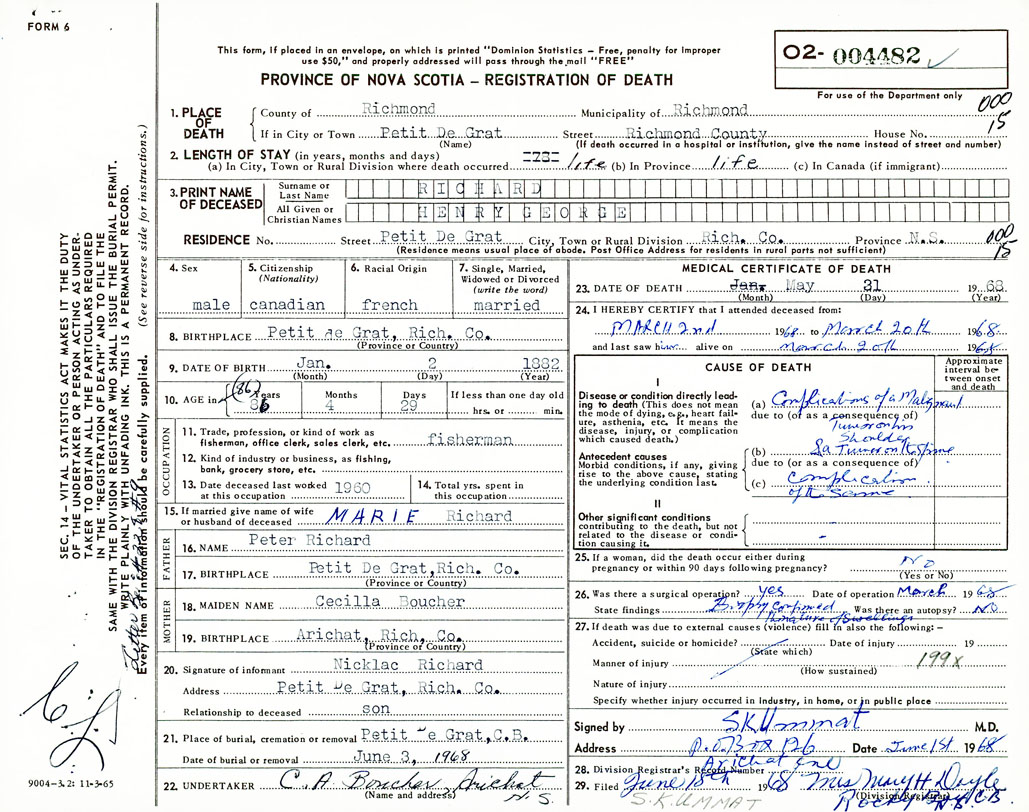 FORM 6
This form, if placed in an envelope, on which is printed "Dominion Statistics – Free, penalty for improper
use $50," and properly addressed will pass through the mail "FREE"
PROVINCE OF NOVA SCOTIA – REGISTRATION OF DEATH
O2- 004482
For use of the Department only
000
15
1. PLACE OF DEATH
County of Richmond Municipality of Richmond
If in City or Town Petit De Grat Street Richmond County House No.
(Name) (If death occurred in a hospital or institution, give the name instead of street and number)
2. LENGTH OF STAY (in years, months and days)
(a) In City, Town or Rural Division where death occurred life (b) In Province life (c) In Canada (if immigrant)
3. PRINT NAME OF DECEASED
Surname or Last Name RICHARD
All Given or Christian Names HENRY GEORGE
RESIDENCE No. Street Petit De Grat City, Town or Rural Division Rich. Co. Province N.S.
(Residence means usual place of abode. Post Office Address for residents in rural parts not sufficient)
000
15
4. Sex
male
5. Citizenship
(Nationality)
canadian
6. Racial Origin
french
7. Single, Married,
Widowed or Divorced
(write the word)
married
8. BIRTHPLACE Petit de Grat, Rich. Co.
(Province or Country)
9. DATE OF BIRTH Jan. 2 1882
(Month) (Day) (Year)
10. AGE in Years Months Days If less than one day old
(86)
86 4 29 hrs. or min.
OCCUPATION
11. Trade, profession, or kind of work as
fisherman, office clerk, sales clerk, etc. fisherman
12. Kind of industry or business, as fishing,
bank, grocery store, etc.
13. Date deceased last worked
at this occupation 1960
14. Total yrs. spent in
this occupation
15. If married give name of wife
or husband of deceased MARIE Richard
FATHER
16. NAME Peter Richard
17. BIRTHPLACE Petit De Grat, Rich. Co.
(Province or Country)
MOTHER
18. MAIDEN NAME Cecilla Boucher
19. BIRTHPLACE Arichat, Rich, Co.
(Province or Country)
20. Signature of informant Nicklac Richard
Address Petit De Grat, Rich. Co.
Relationship to deceased son
21. Place of burial, cremation or removal Petit De Grat, C.B.
Date of burial or removal June 3, 1968
22. UNDERTAKER C. A. Boucher Arichat
(Name and address) N.S.
MEDICAL CERTIFICATE OF DEATH
23. DATE OF DEATH Jan. May 31 1968
(Month) (Day) (Year)
24. I HEREBY CERTIFY that I attended deceased from:
MARCH 2nd 1968 to March 20th 1968
and last saw him alive on March 20th 1968
CAUSE OF DEATH
Approximate interval between onset and death
I
Disease or condition directly leading to death (This does not mean
the mode of dying, e.g., heart failure, asthenia, etc. It means the
disease, injury, or complication
which caused death.)
(a) Complications of a Malignant
due to (or as a consequence of)
Tumor on his
Shoulder
Antecedent causes
Morbid conditions, if any, giving
rise to the above cause, stating
the underlying condition last.
(b) Tumor on the Spine
due to (or as a consequence of)
(c) Complication
of the Same
II
Other significant conditions
contributing to the death, but not
related to the disease or condition causing it.
25. If a woman, did the death occur either during
pregnancy or within 90 days following pregnancy? NO
(Yes or No)
26. Was there a surgical operation? yes Date of operation March 1968
State findings Biopsy confirmed Was there an autopsy? NO
nature of Swellings
27. If death was due to external causes (violence) fill in also the following:–
Accident, suicide or homicide? Date of injury 19
(State which)
Manner of injury 199x
(How sustained)
Nature of injury
Specify whether injury occurred in industry, in home, or in public place
Signed by SKUmmat M.D.
Address P.O. Box 126 Date June 1st 1968
Arichat
28. Division Registrar's Record Number
29. Filed June 18th 1968 Mrs Mary H Doyle
(Division Registrar)
S.K. UMMAT
SEC. 14 – VITAL STATISTICS ACT MAKES IT THE DUTY
OF THE UNDERTAKER OR PERSON ACTING AS UNDERTAKER TO OBTAIN ALL THE PARTICULARS REQUIRED
IN THE "REGISTRATION OF DEATH" AND TO FILE THE
SAME WITH THE DIVISION REGISTRAR WHO SHALL ISSUE THE BURIAL PERMIT.
WRITE PLAINLY WITH UNFADING INK. THIS IS A PERMANENT RECORD.
Every item of information should be carefully supplied. (See reverse side for instructions.)
9004-3.2: 11-3-65